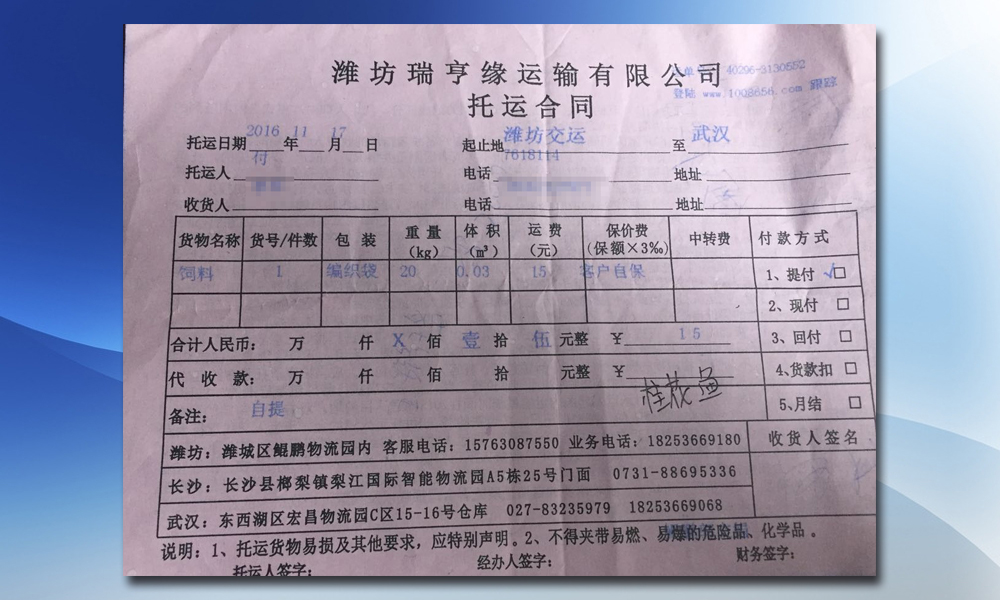 潍坊瑞亨缘运输有限公司
单 40296-3130552
托运合同
登陆 www.1008656.com 跟踪
托运日期 2016年 11月 17日 起止地 潍坊交运 至 武汉
托运人 付 电话 7618114 地址
收货人 电话 地址
货物名称 货号/件数 包装 重量(kg) 体积(m³) 运费(元) 保价费(保额×3‰) 中转费 付款方式
饲料 1 编织袋 20 0.03 15 客户自保 1、提付 √□
2、现付 □
合计人民币: 万 仟 X 佰 壹 拾 伍 元整 ¥ 15 3、回付 □
代收款: 万 仟 佰 拾 元整 ¥ 4、货款扣 □
桂花鱼
备注: 自提 5、月结 □
潍坊: 潍城区鲲鹏物流园内 客服电话: 15763087550 业务电话: 18253669180 收货人签名
长沙: 长沙县榔梨镇梨江国际智能物流园A5栋25号门面 0731-88695336
武汉: 东西湖区宏昌物流园C区15-16号仓库 027-83235979 18253669068
说明: 1、托运货物易损及其他要求,应特别声明。2、不得夹带易燃、易爆的危险品、化学品。
托运人签字: 经办人签字: 财务签字: